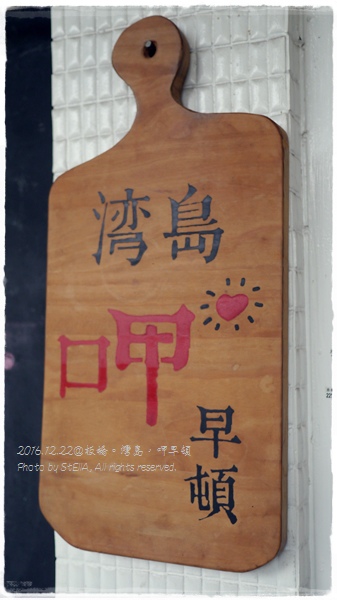 湾島
呷
早頓
2016.12.22@板橋。灣島，呷早頓
Photo by StEllA. All rights reserved.